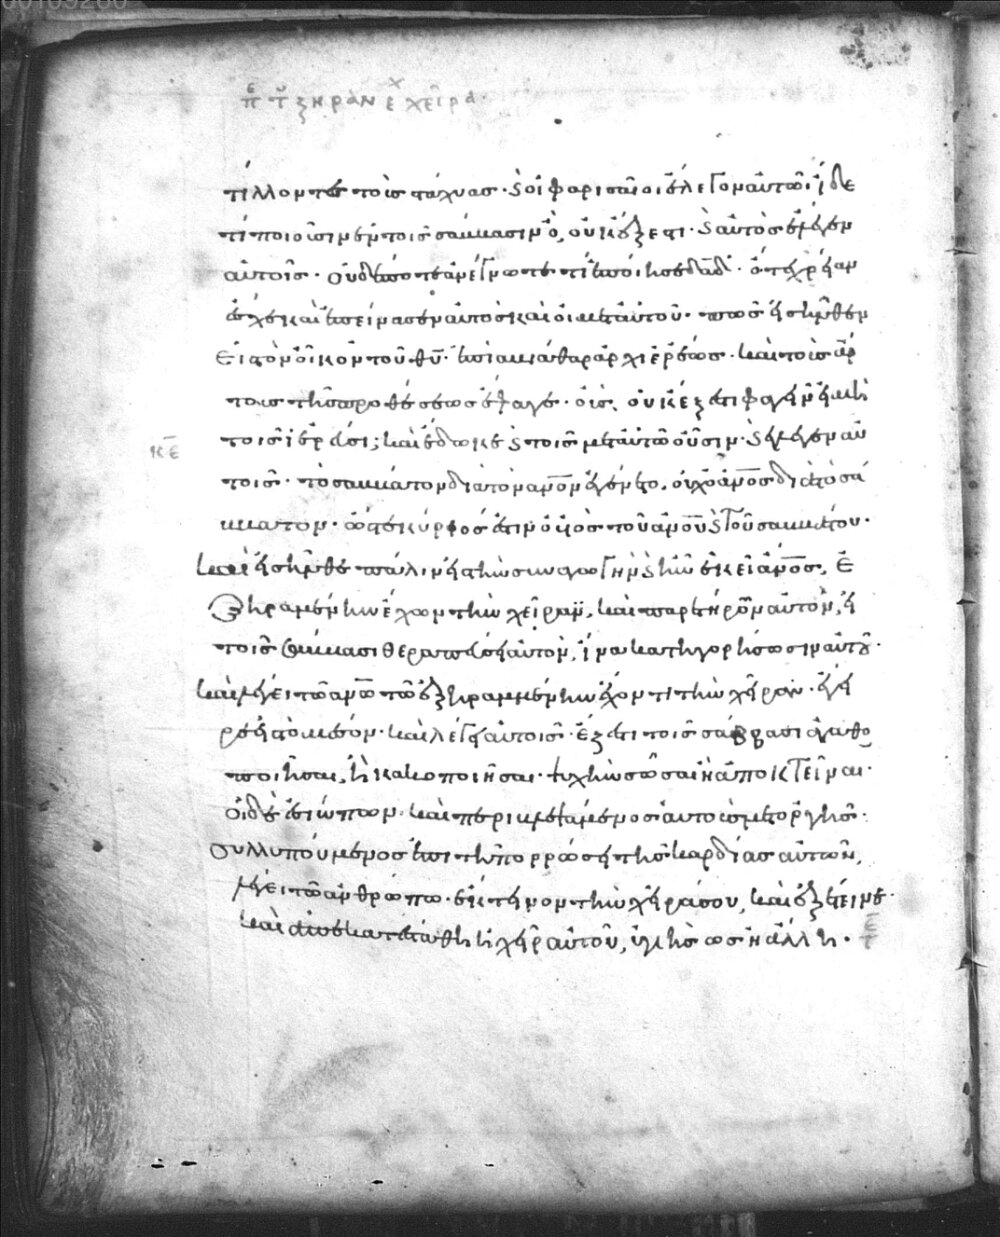 π τ ξηραν ε χειρα
τίλλοντες τοὺς στάχυας· ϗ οἱ φαρισαῖοι ἔλεγον αὐτῶ· ἴδε
τί ποιοῦσιν ἐν τοῖς σάββασιν ὃ οὐκ ἔξεστι· ϗ αὐτὸς ἔλεγεν
αὐτοῖς· οὐδέποτε ἀνέγνωτε τί ἐποίησε δᾱδ· ὅτε χρείαν
ἔσχε καὶ ἐπείνασεν αὐτὸς καὶ οἱ μετ αὐτοῦ· πῶς εἰσῆλθεν
εἰς τὸν οἶκον τοῦ θ̅υ̅· ἐπὶ ἀβιάθαρ ἀρχιερέως· καὶ τοὺς ἄρ
τους τῆς προθέσεως ἔφαγε· οὓς οὐκ ἔξεστι φαγεῖν εἰ μὴ
τοῖς ἱερεῦσι; καὶ ἔδωκε ϗ τοῖς μετ αὐτῶ οὖσιν· ϗ ἔλεγεν αὐ
τοῖς· τὸ σάββατον διὰ τὸν α̅ν̅ο̅ν̅ ἐγένετο. οὐχ ὁ α̅ν̅ο̅ς̅ διὰ τὸ σά
ββατον· ὥστε κύριός ἐστιν ὁ υἱὸς τοῦ α̅ν̅ο̅υ̅ ϗ τοῦ σαββάτου·
κ̅ε̅
καὶ εἰσῆλθε πάλιν εἰς τὴν συναγωγήν ϗ ἦν ἐκεῖ α̅ν̅ο̅ς̅, ἐ
ξηραμένην ἔχων τὴν χεῖραν, καὶ παρετήρουν αὐτὸν, εἰ
τοῖς σάββασι θεραπεύσει αὐτὸν, ἵνα κατηγορήσωσιν αὐτοῦ·
καὶ λέγει τῶ α̅ν̅ω̅ τῶ ἐξηραμμένην ἔχοντι τὴν χεῖραν· ἔγει
ρε εἰς τὸ μέσον· καὶ λέγει αὐτοῖς· ἔξεστι τοῖς σάββασι ἀγαθο
ποιῆσαι, ἢ κακοποιῆσαι· ψυχὴν σῶσαι ἢ ἀποκτεῖναι·
οἱ δὲ ἐσιώπων· καὶ περιβλεψάμενος αὐτοὺς μετ ὀργῆς·
συλλυπούμενος ἐπὶ τῆ πορρώσει τῆς καρδίας αὐτῶν,
λέγει τῶ ἀνθρώπω· ἔκτεινον τὴν χεῖρά σου, καὶ ἐξέτεινε·
καὶ ἀπεκατεστάθη ἡ χεὶρ αὐτοῦ, ὑγιὴς ὡς ἡ ἄλλη·